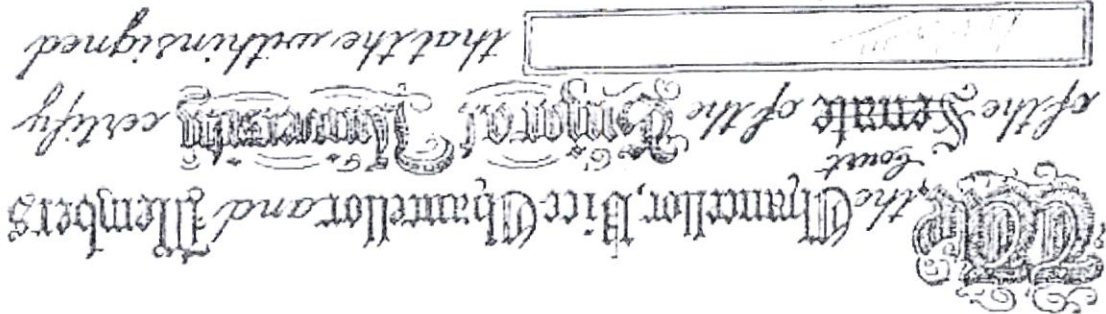 We, the Chancellor, Vice Chancellor and Members
Court
of the Senate of the University certify
that the within signed